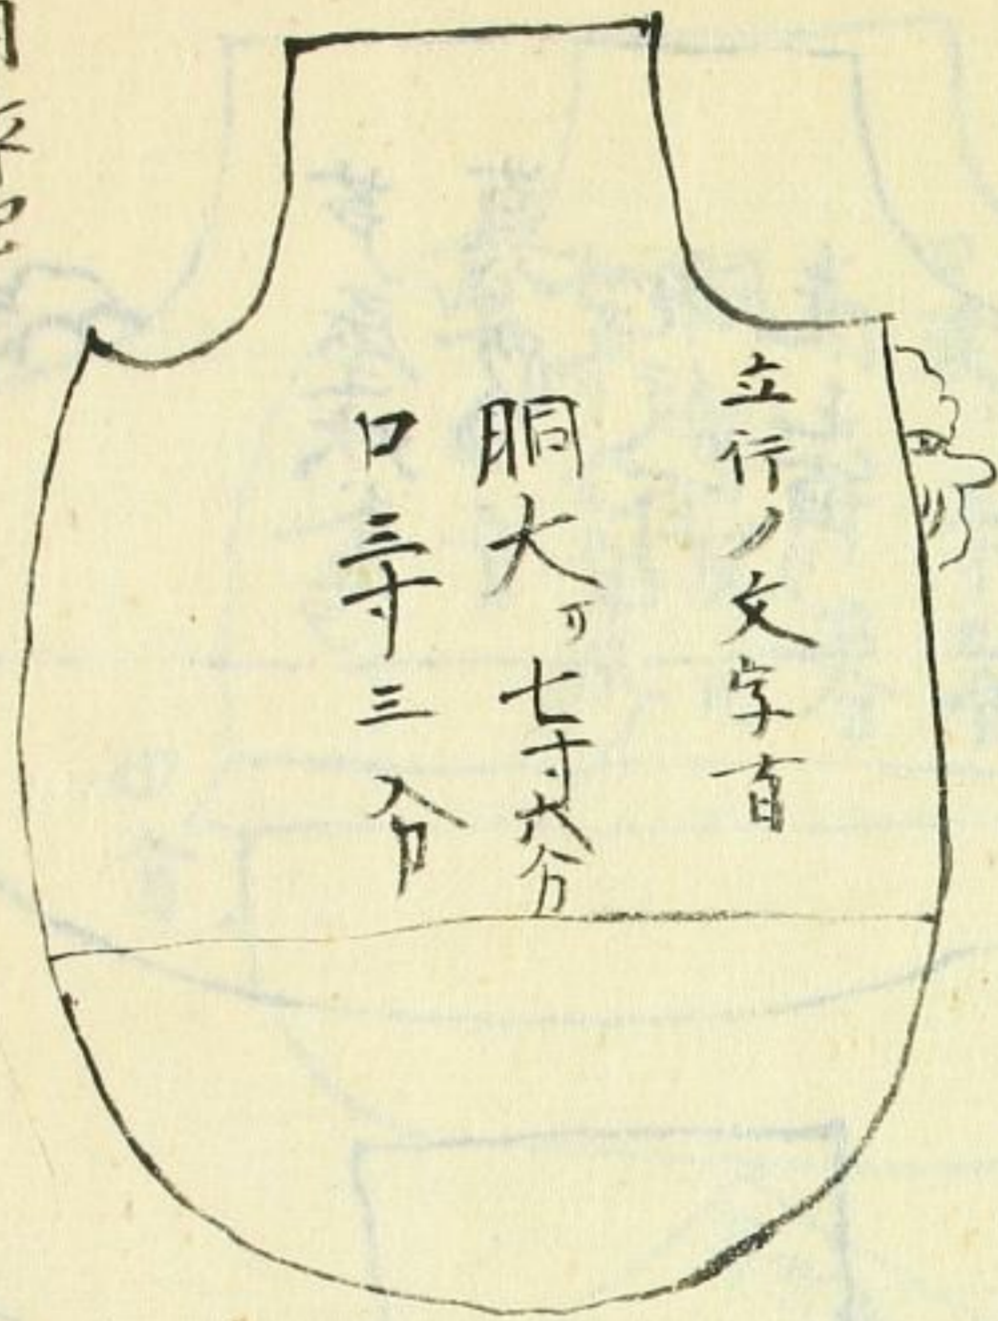 立行ノ文字有
胴大サ七寸六分
口三寸三分